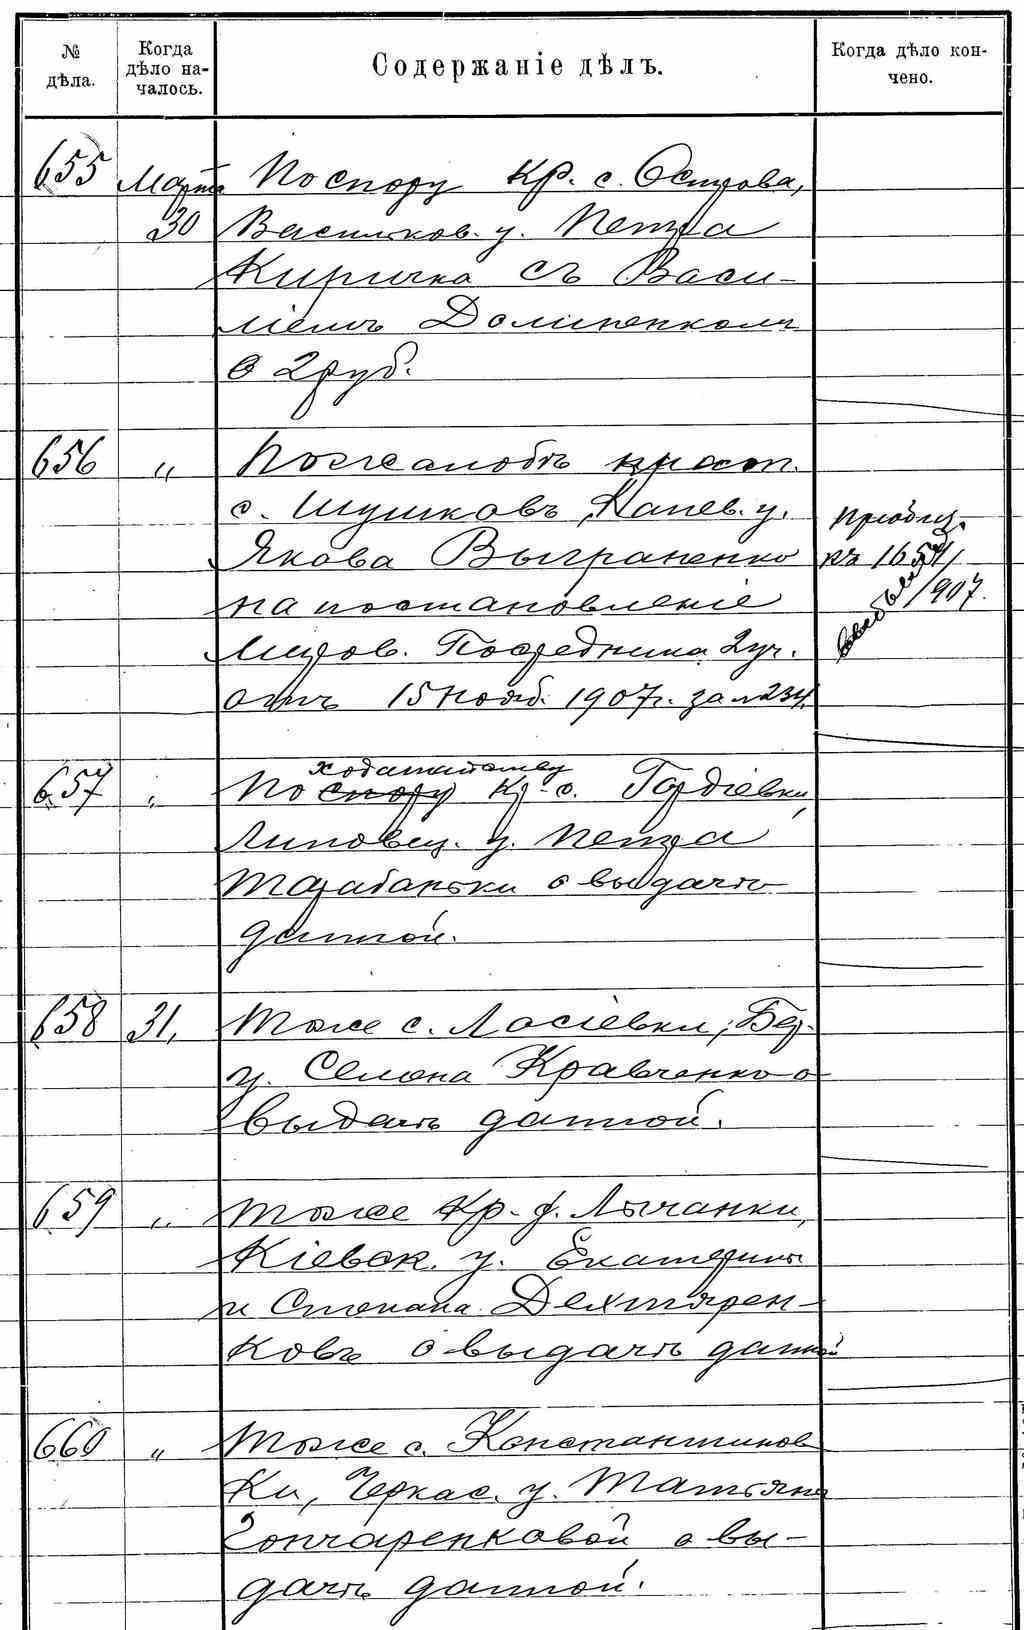 № дѣла.
Когда дѣло началось.
Содержаніе дѣлъ.
Когда дѣло кончено.
655 Марта По спору кр. с. Острова,
30 Васильков. у. Петра
Киричка съ Васи-
ліемъ Долиненкомъ
о 2 руб.
656 „ По жалобѣ крест.
с. Шушковъ, Канев. у.
Якова Выграненко
на постановленіе
Миров. Посредника 2 уч.
отъ 15 Нояб. 1907 г. за № 234.
Пріобщ.
къ 1654/
1907.
657 „ По спору ходатайству кр. с. Гордіевки,
Липовец. у. Петра
Тарабаньки о выдачѣ
данной.
658 31, Тоже с. Лосіевки, Бер.
у. Семена Кравченко о
выдачѣ данной.
659 „ Тоже кр. д. Лычанки,
Кіевск. у. Екатерины
и Степана Дехтярен-
ковъ о выдачѣ данной
660 „ Тоже с. Константинов
ки, Черкас. у. Татьяны
Гончаренковой о вы-
дачѣ данной.